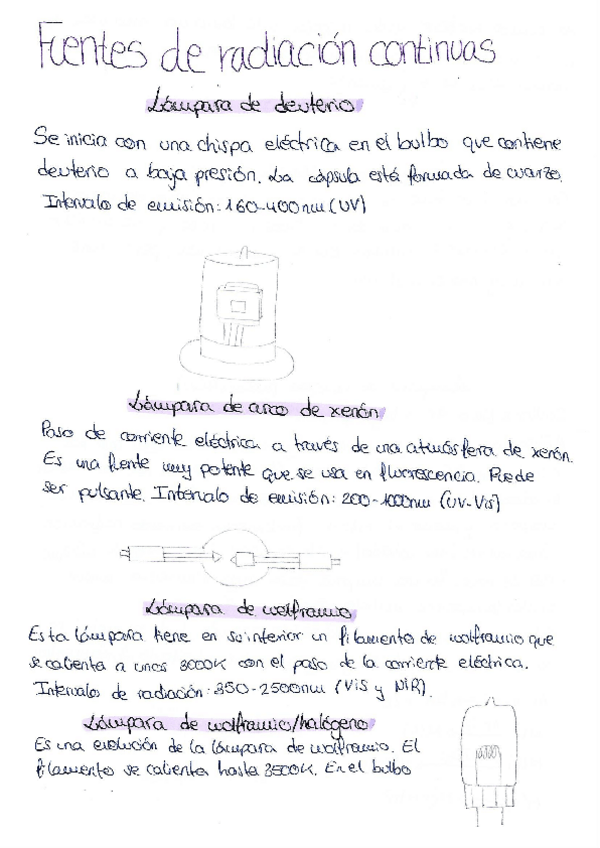 Fuentes de radiación continuas
Lámpara de deuterio
Se inicia con una chispa eléctrica en el bulbo que contiene
deuterio a baja presión. La cápsula está formada de cuarzo.
Intervalo de emisión: 160-400nm (UV)
Lámpara de arco de xenón
Paso de corriente eléctrica a través de una atmósfera de xenón.
Es una fuente muy potente que se usa en fluorescencia. Puede
ser pulsante. Intervalo de emisión: 200-1000nm (UV-Vis)
Lámpara de wolframio
Esta lámpara tiene en su interior un filamento de wolframio que
se calienta a unos 3000K con el paso de la corriente eléctrica.
Intervalo de radiación: 350-2500nm (Vis y NIR).
Lámpara de wolframio/halógeno
Es una evolución de la lámpara de wolframio. El
filamento se calienta hasta 3500K. En el bulbo